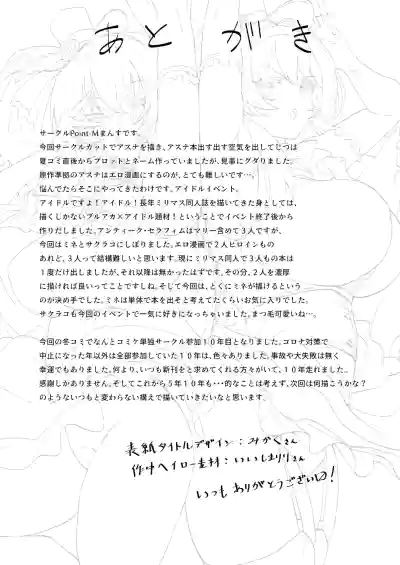 あとがき
サークルPoint Mまんすです。
今回サークルカットでアスナを描き、アスナ本出す出す空気を出してじつは
夏コミ直後からプロットとネーム作っていましたが、見事にグダりました。
原作準拠のアスナはエロ漫画にするのが、とても難しいです…。
悩んでたらそこにやってきたわけです。アイドルイベント。
アイドルですよ！アイドル！長年ミリマス同人誌を描いてきた身としては、
描くしかないブルアカ×アイドル題材！ということでイベント終了後から
作りだしました。アンティーク・セラフィムはマリー含めて３人ですが、
今回はミネとサクラコにしぼりました。エロ漫画で２人ヒロインもの
あれど、３人って結構難しいと思います。現にミリマス同人で３人もの本は
１度だけ出しましたが、それ以降は無かったはずです。その分、２人を濃厚
に描ければ良いってことですしね。そして今回は、とくにミネが描けるという
のが決め手でした。ミネは単体で本を出そと考えてたくらいお気に入りでした。
サクラコも今回のイベントで一気に好きになっちゃいました。まつ毛可愛いね…。
今回の冬コミでなんとコミケ単独サークル参加１０年目となりました。コロナ対策で
中止になった年以外は全部参加していた１０年は、色々ありました。事故や大失敗は無く
幸運でもありました。何より、いつも新刊を求めてくれる方々がいて、１０年走れました。
感謝しかありません。そしてこれから５年１０年も・・・的なことは考えず、次回は何描こうかな？
のようないつもと変わらない構えで描いていきたいなと思います。
表紙タイトルデザイン：みかくさん
作中ヘイロー素材：いいしまりりさん
いつもありがとうございます！